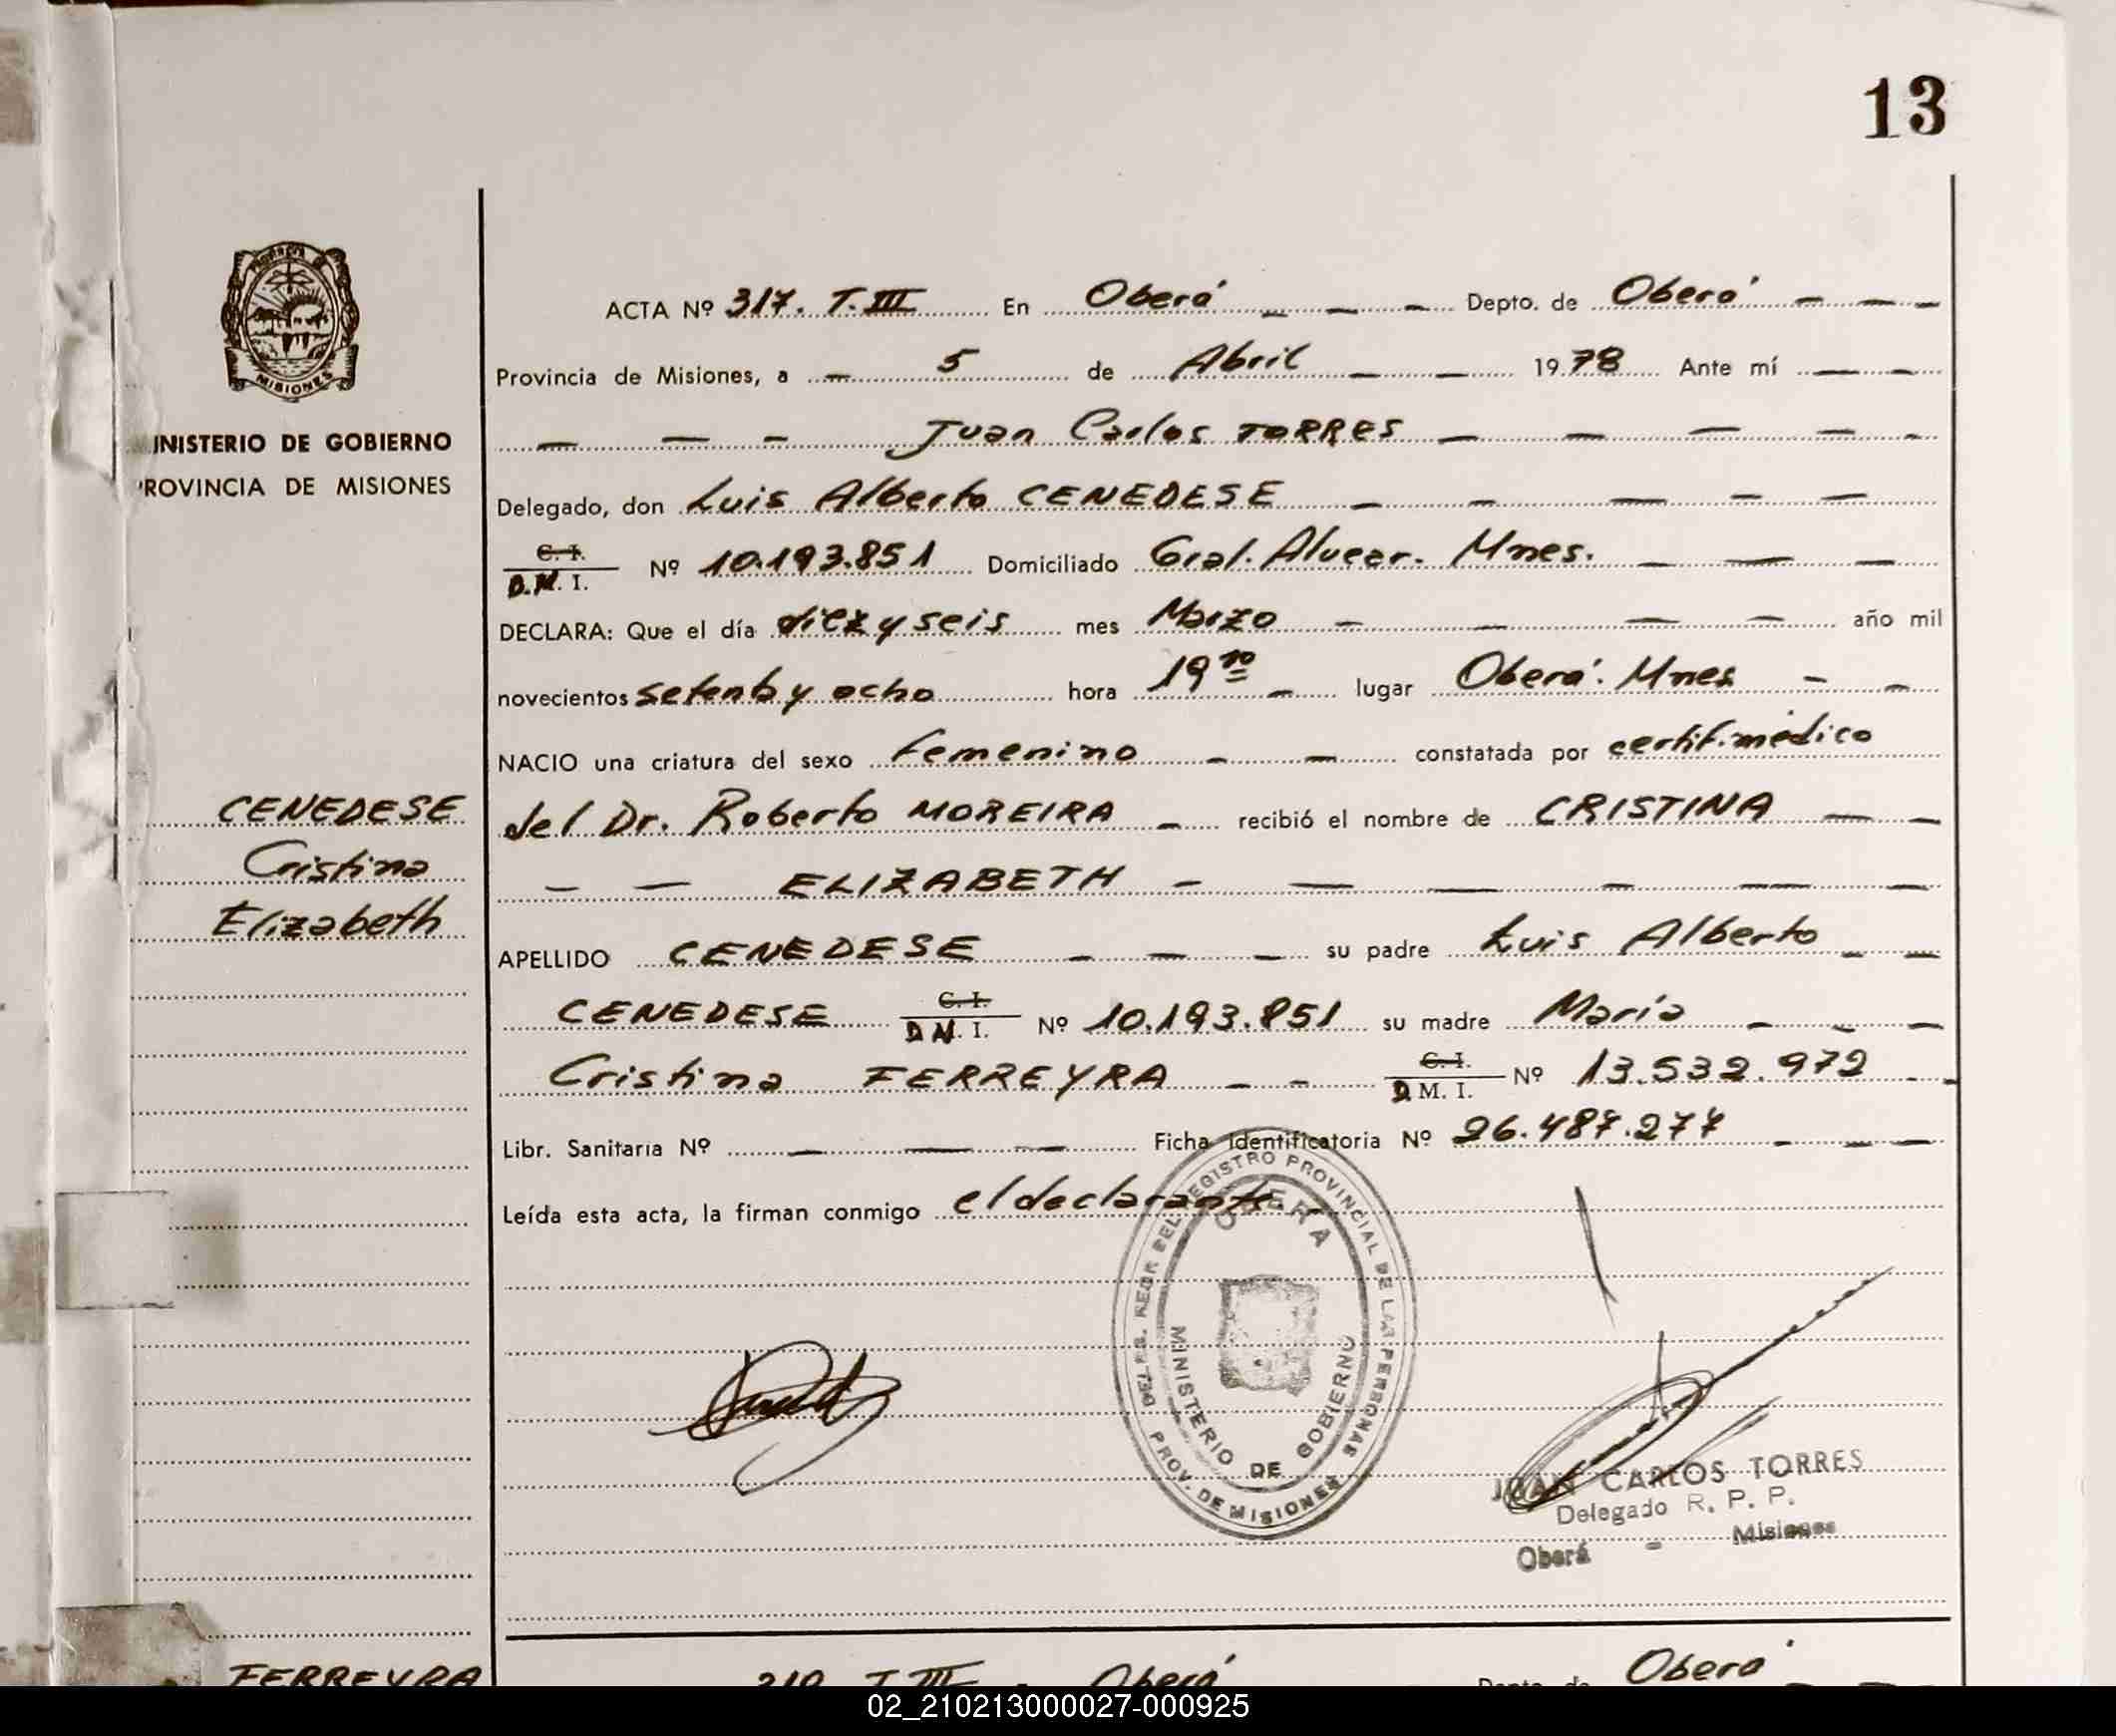 13
PROVINCIA DE
MISIONES
INISTERIO DE GOBIERNO
ROVINCIA DE MISIONES
ACTA Nº 317. T. III En Oberá Depto. de Oberá
Provincia de Misiones, a 5 de Abril 1978 Ante mí
Juan Carlos TORRES
Delegado, don Luis Alberto CENEDESE
C. I.
D.N. I. Nº 10.193.851 Domiciliado Gral. Alvear. Mnes.
DECLARA: Que el día diez y seis mes Marzo año mil
novecientos setenta y ocho hora 19 10 lugar Oberá. Mnes
NACIO una criatura del sexo femenino constatada por certif. médico
CENEDESE
Cristina
Elizabeth
del Dr. Roberto MOREIRA recibió el nombre de CRISTINA
ELIZABETH
APELLIDO CENEDESE su padre Luis Alberto
CENEDESE C. I.
D N. I. Nº 10.193.851 su madre María
Cristina FERREYRA C. I.
D M. I. Nº 13.532.972
Libr. Sanitaria Nº Ficha Identificatoria Nº 26.487.277
Leída esta acta, la firman conmigo el declarante.
REGISTRO PROVINCIAL DE LAS PERSONAS
PROV. DE MISIONES
OBERA
MINISTERIO DE GOBIERNO
JUAN CARLOS TORRES
Delegado R. P. P.
Oberá - Misiones
FERREYRA
T III Oberá Depto. de Oberá
02_210213000027-000925